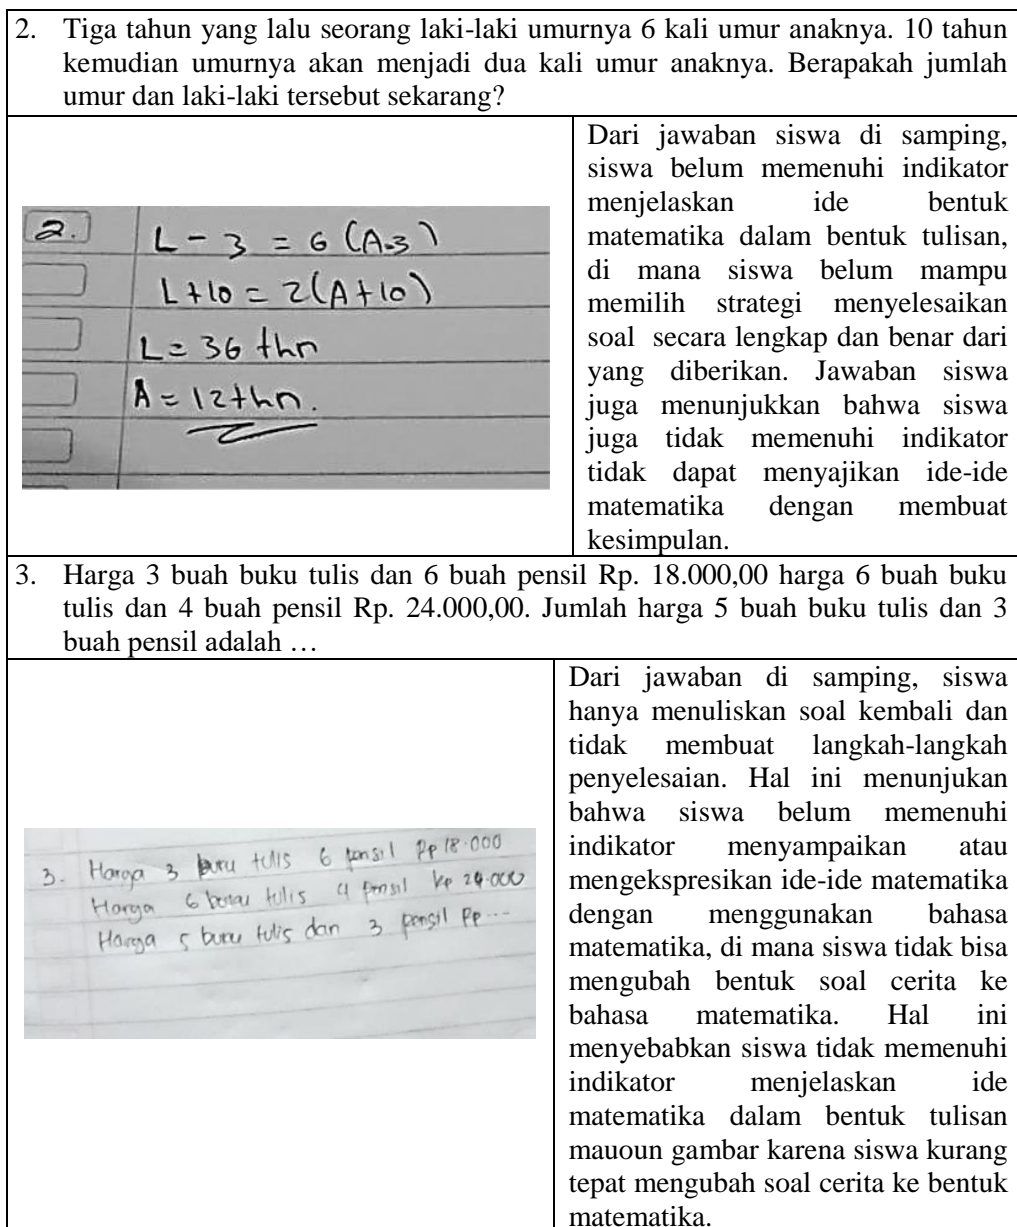 2. Tiga tahun yang lalu seorang laki-laki umurnya 6 kali umur anaknya. 10 tahun
kemudian umurnya akan menjadi dua kali umur anaknya. Berapakah jumlah
umur dan laki-laki tersebut sekarang?
2. L - 3 = 6 (A-3)
L+10 = 2(A+10)
L= 36 thn
A = 12thn.
Dari jawaban siswa di samping,
siswa belum memenuhi indikator
menjelaskan ide bentuk
matematika dalam bentuk tulisan,
di mana siswa belum mampu
memilih strategi menyelesaikan
soal secara lengkap dan benar dari
yang diberikan. Jawaban siswa
juga menunjukkan bahwa siswa
juga tidak memenuhi indikator
tidak dapat menyajikan ide-ide
matematika dengan membuat
kesimpulan.
3. Harga 3 buah buku tulis dan 6 buah pensil Rp. 18.000,00 harga 6 buah buku
tulis dan 4 buah pensil Rp. 24.000,00. Jumlah harga 5 buah buku tulis dan 3
buah pensil adalah …
3. Harga 3 tulis 6 pensil Rp 18.000
Harga 6 tulis 4 pensil Rp 24.000
Harga 5 tulis dan 3 pensil Rp ...
Dari jawaban di samping, siswa
hanya menuliskan soal kembali dan
tidak membuat langkah-langkah
penyelesaian. Hal ini menunjukan
bahwa siswa belum memenuhi
indikator menyampaikan atau
mengekspresikan ide-ide matematika
dengan menggunakan bahasa
matematika, di mana siswa tidak bisa
mengubah bentuk soal cerita ke
bahasa matematika. Hal ini
menyebabkan siswa tidak memenuhi
indikator menjelaskan ide
matematika dalam bentuk tulisan
mauoun gambar karena siswa kurang
tepat mengubah soal cerita ke bentuk
matematika.